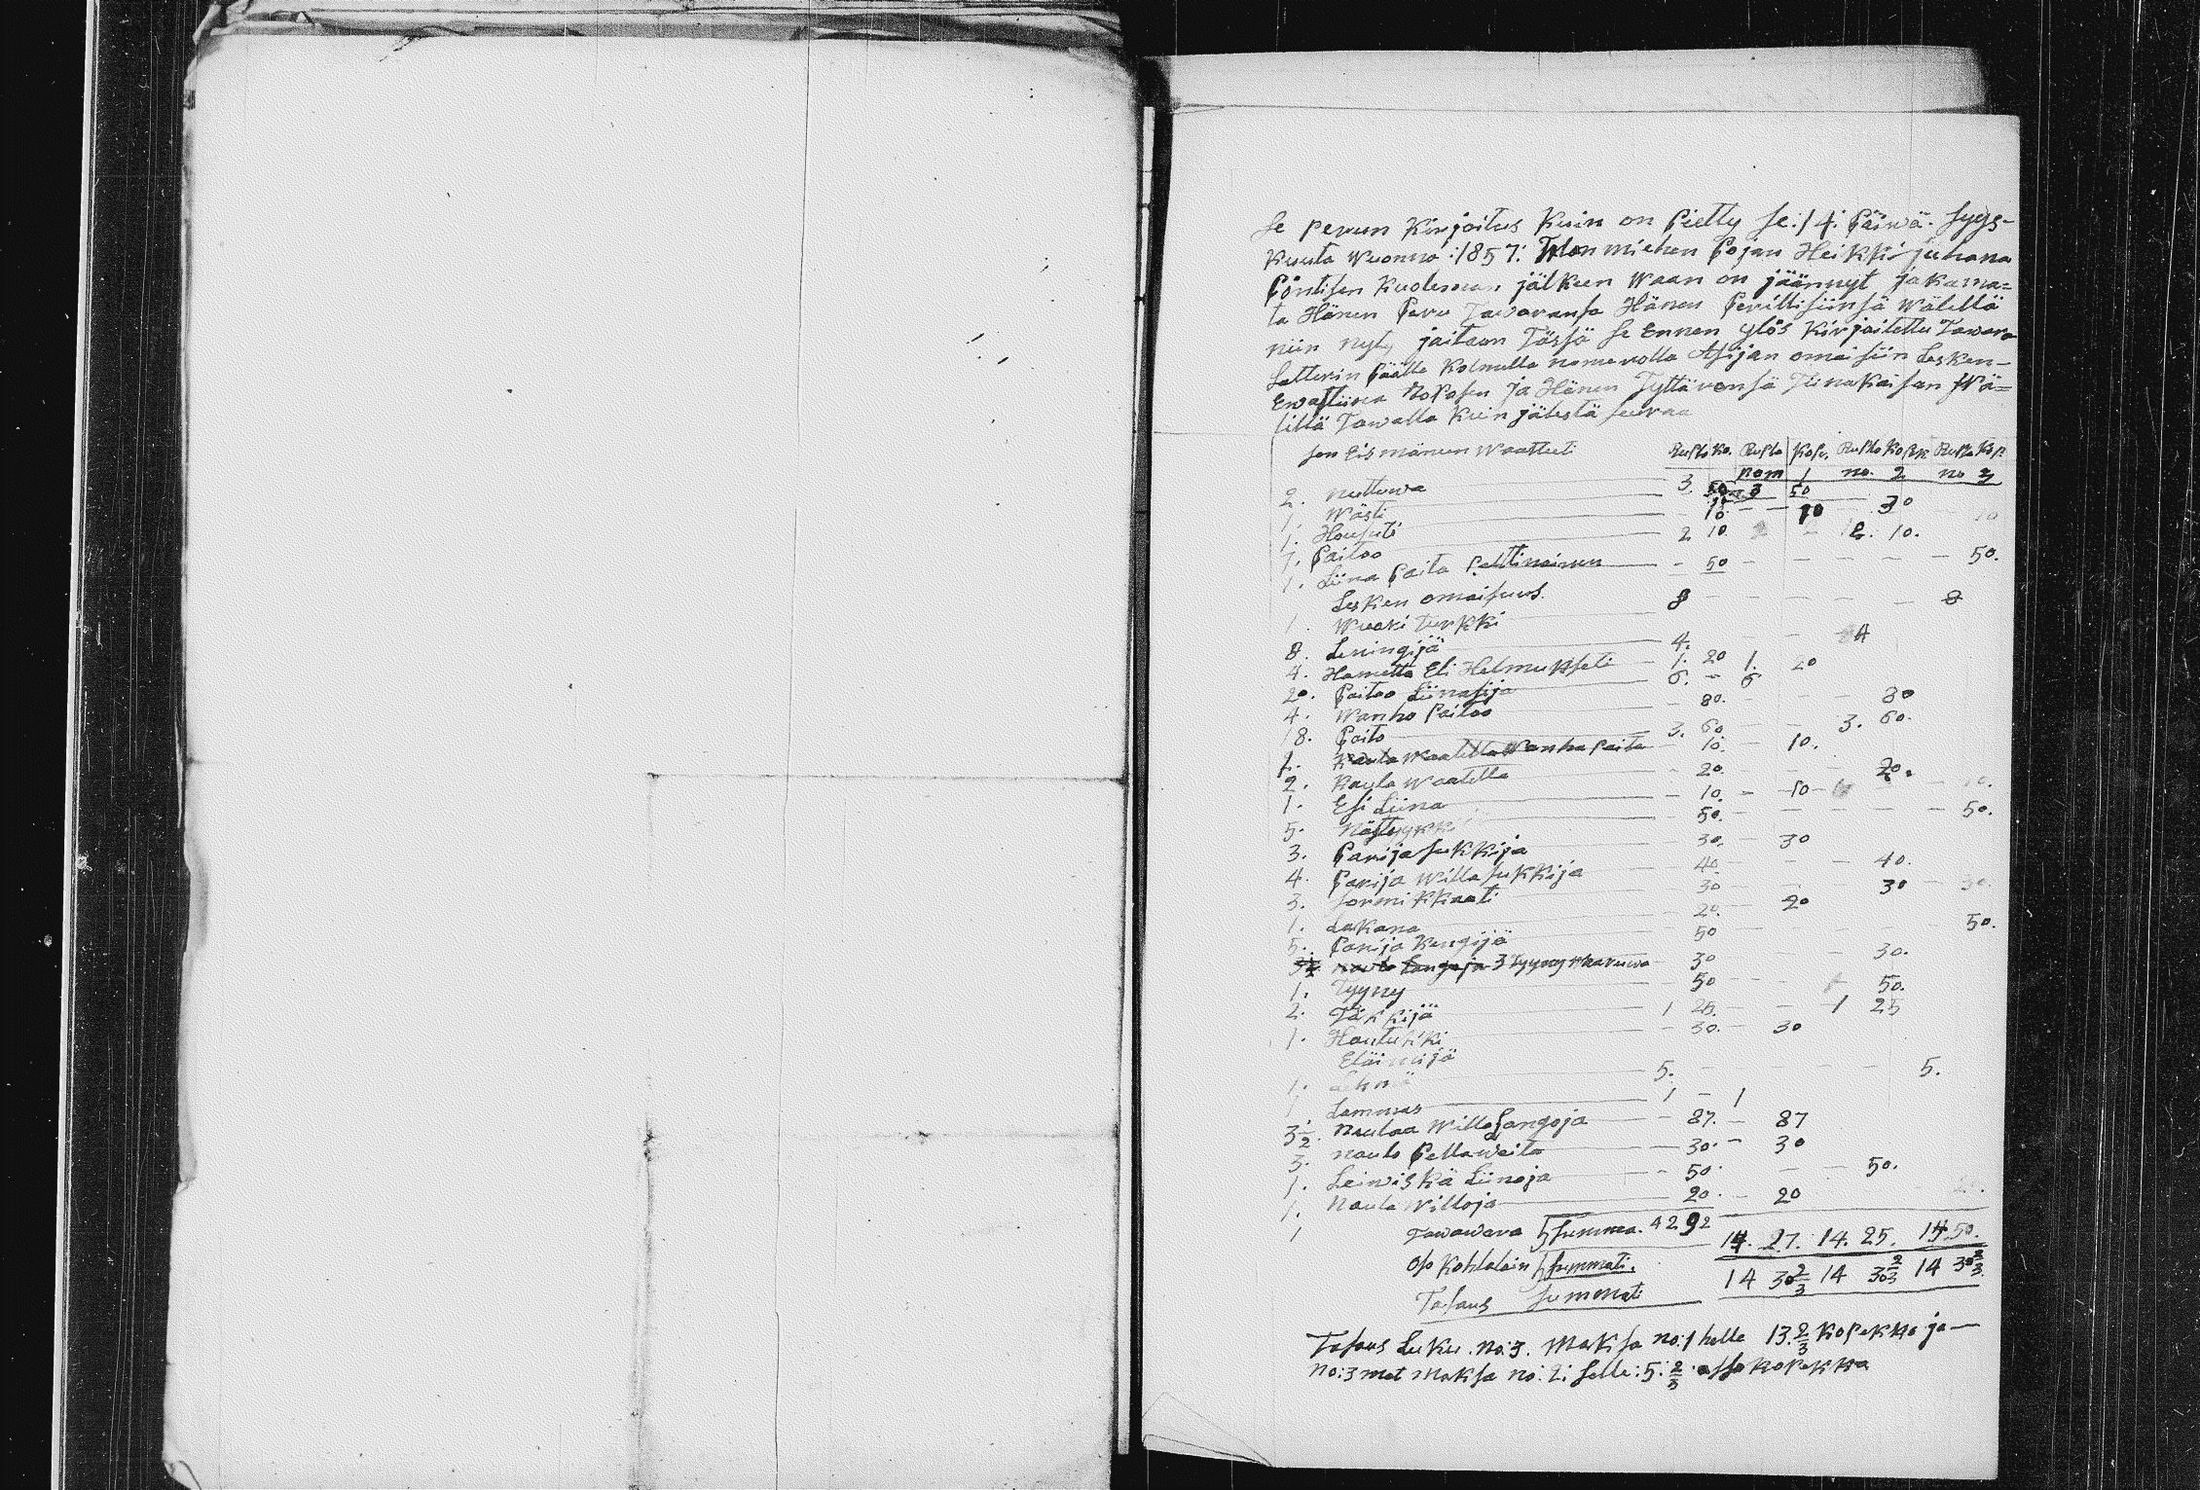 Se perun Kirjoitus Kuin on Pietty Se: 14: Päiwä: Syys-
Kuuta wuonna :1857: Talon miehen Pojan Heikki juhana
Pöntisen Kuoleman jälkeen waan on jäännyt jakama=
ta Hänen Peru Tawaransa Hänen Perillisiinsä wälillä
niin nyt jaitaan Tässä Se Ennen ylös Kirjoitettu Tawara
Satterin Päälle Kolmella nomerolla Asijan omaisiin Lesken-
Ewastiina Nokosen ja Hänen Tyttärensä Tiinakaisan Wä=
lillä Tawalla Kuin jälestä seuraa
Sen Eismänen Waatteet Rupla Ko. Rupla Kop. Rupla Kopek Rupla Kop
nom 1 no. 2 no 3
2. nuttuwa 3. 50 3 50
1. Wästi 10. 10 30
1. Housuti 2 10. 2. 10.
7. Paitoo
1. Liina Paita Palttinainen - 50 - 50.
Lesken omaisuus.
1. Wuori turkki 8 8
8. Leningijä 4. 4
4. Hametta Eli Helmukseti 1. 20 1. 20
20. Paitoo Liinasija 6. - 6
4. Wanho Paitoo 80. 80
18. Paito 3. 60 3. 60.
1. Kaula Waatetta Wanha Paita 10. 10.
2. Kaula Waatetta 20. 20.
1. Esi Liina 10. - 10
5. Nästyykki 50. 50.
3. Parija sukkija 30. 30
4. Parija Willa sukkija 40. 40.
3. Sormikkaati 30 30
1. Lakana 20. 20
5. Parija Kengijä 50 50.
3 Tyynynwaruwa 30 30.
1. Tyyny 50 50.
2. Täkkijä 1 25. 1 25
1. Hantukki 30. 30
Eläimijä
1. Lehmä 5. 5.
1 Lammas 1 - 1
3 1/2. Naulaa Willa Langoja 87. 87
3. naulo Pellaweita 30. - 30
1. Leiwiskä Liinoja 50. 50.
1. Naula Willoja 20. 20
1 Tawawara Summa. 42 92 14. 27. 14. 25. 14 50.
Op Kohtalain Summati. 14 30 2/3 14 30 2/3 14 30 2/3
Tasaus Summati
Tasaus Luku. no: 3. Maksa no: 1 helle 13. 2/3 Kopekko ja-
no: 3 mat Maksa no: 2: Selle: 5: 2/3 osso Kopekka